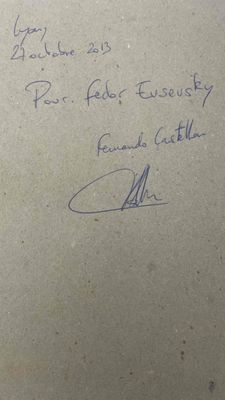 Lyon,
27 octobre 2013
Pour. Fedor Evsevsky
Fernando Castellon